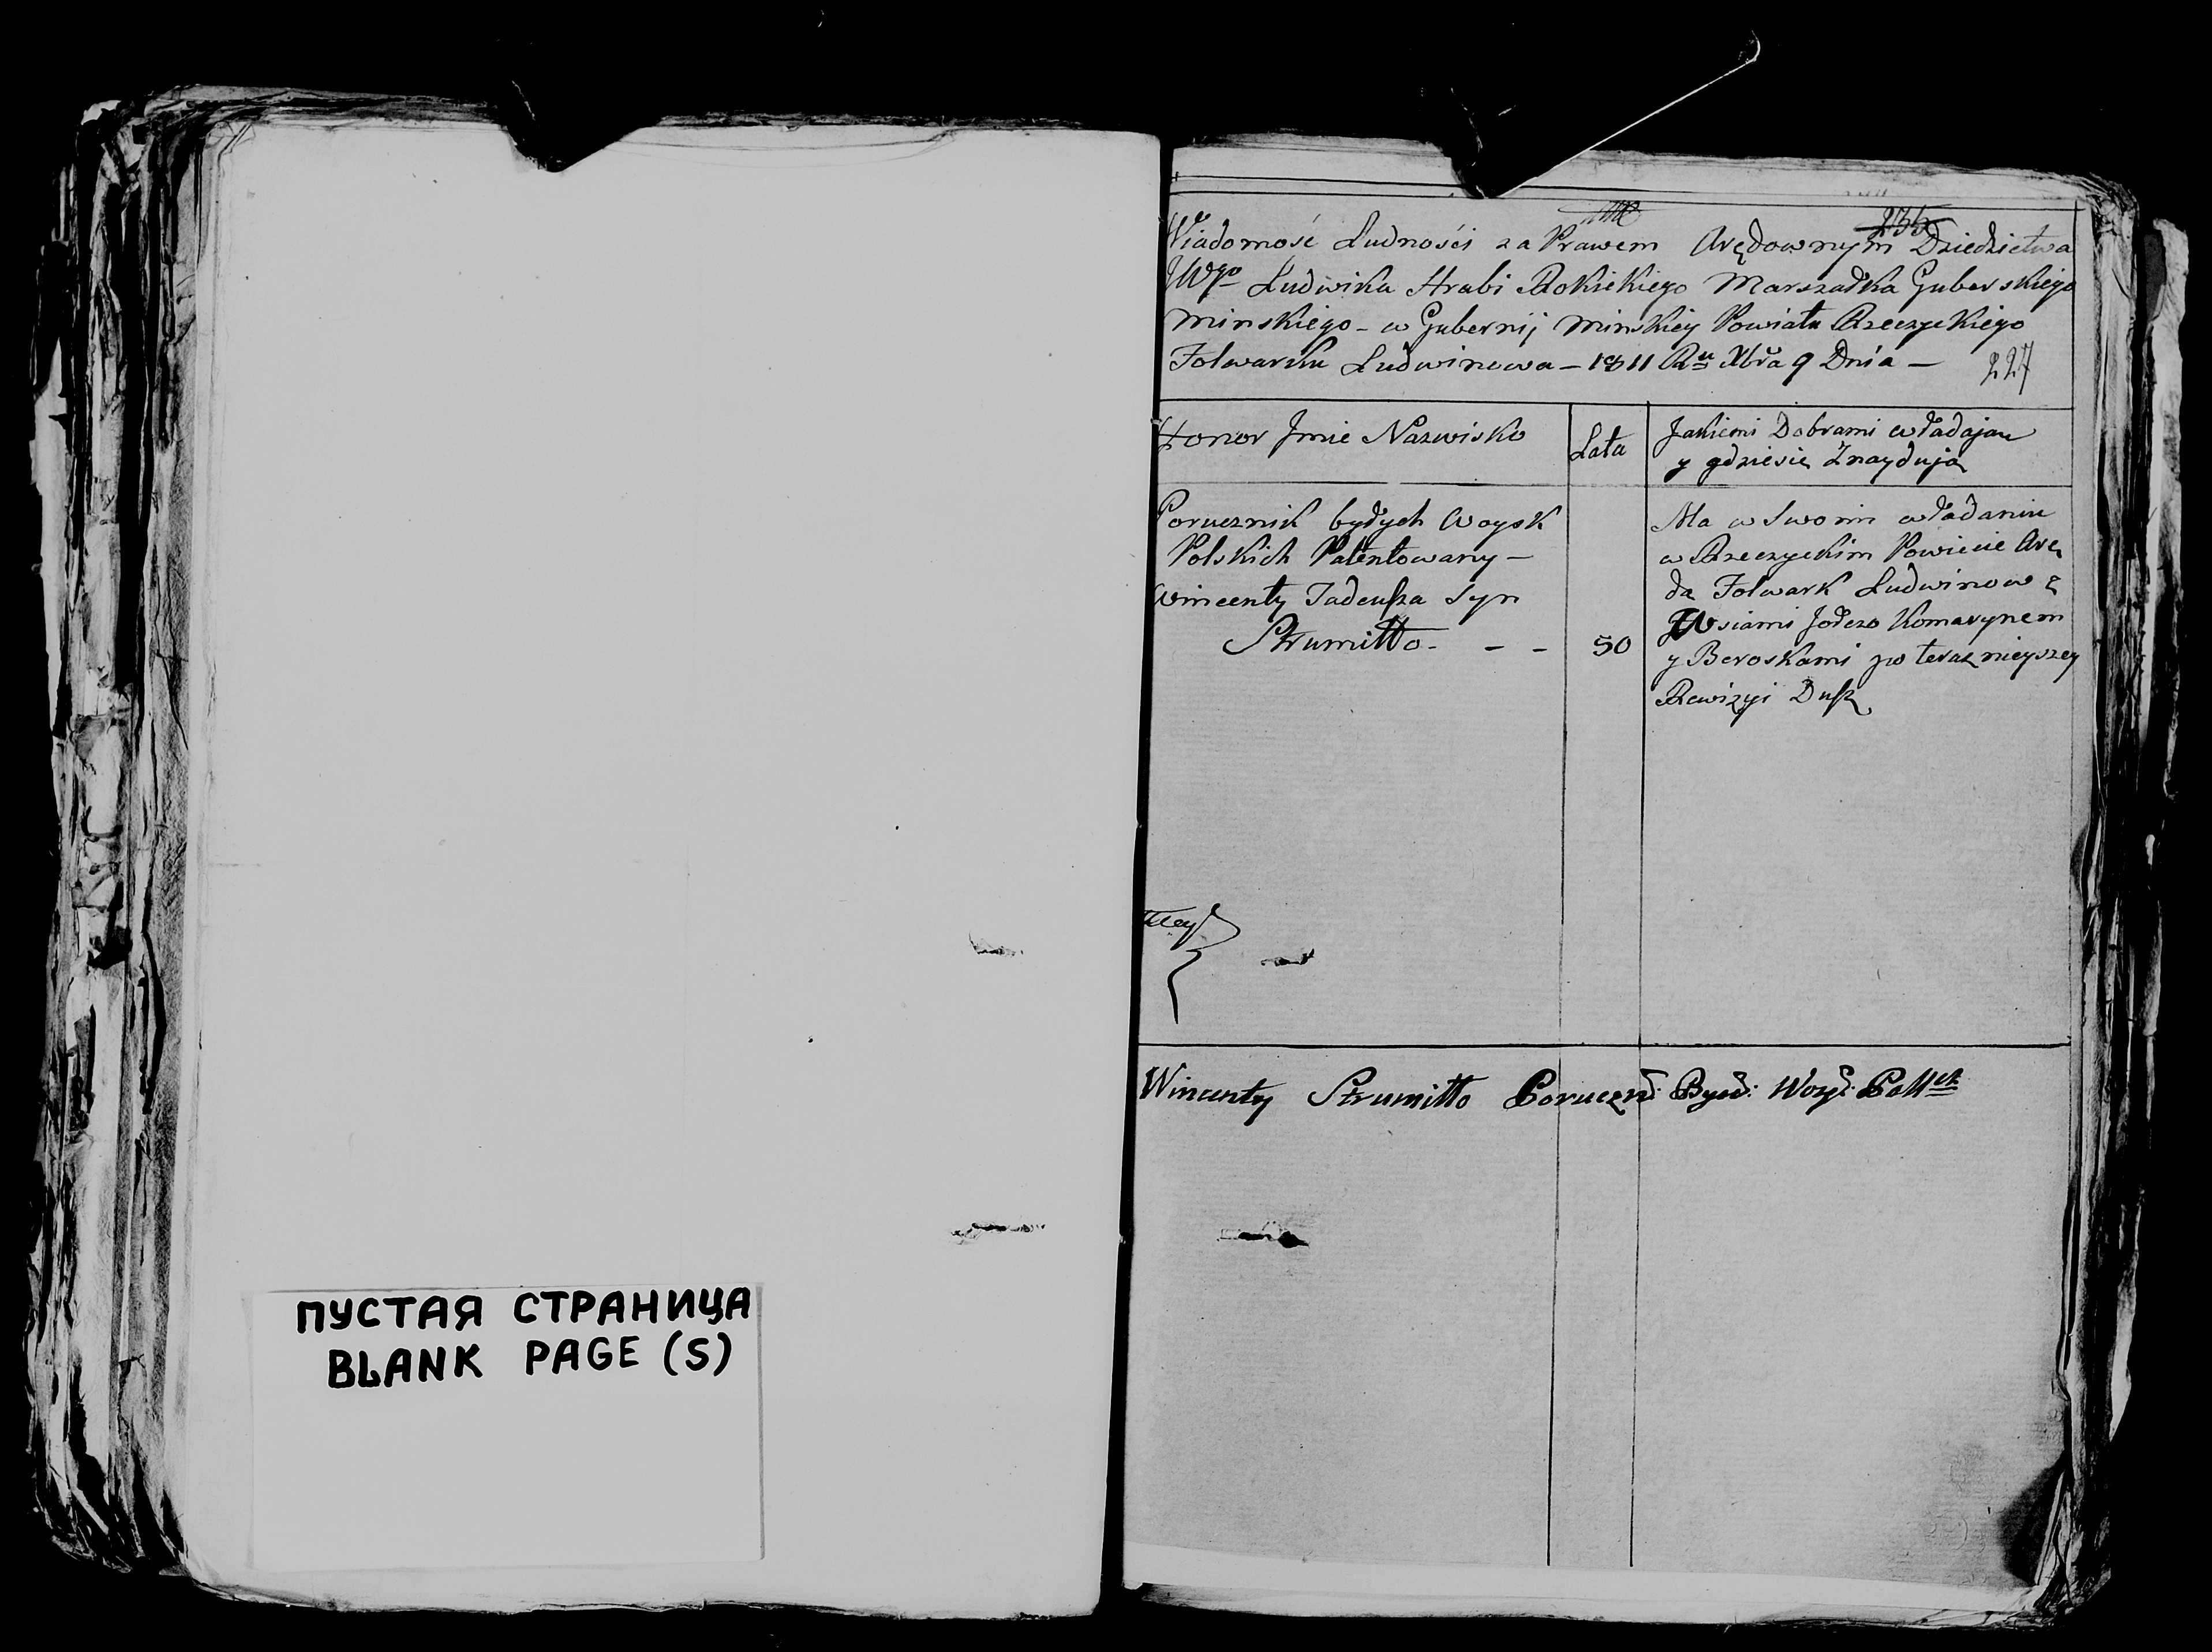 ПУСТАЯ СТРАНИЦА
BLANK PAGE (S)
236
Wiadomość Ludności za Prawem Arędownym Dziedzictwa
JWgo Ludwika Hrabi Rokickiego Marszałka Guberskiego
Minskiego - w Gubernij Minskiey Powiatu Rzeczyckiego
Folwarku Ludwinowa - 1811 Ru Xbra 9 Dnia -
227
Honor Jmie Nazwisko
Lata
Jakiemi Dobrami władają
y gdziesię Znaydują
Porucznik byłych Woysk
Polskich Patentowany -
Wincenty Tadeusza Syn
Strumiłło - - -
50
Ma w Swoim władaniu
w Rzeczyckim Powiecie Arę
dą Folwark Ludwinow z
Wsiami Jołczo Komarynem
y Beroskami po teraznieyszey
Rewizyi Dusz
Wincenty Strumiłło Poruczn: Był: Woys: Polsch